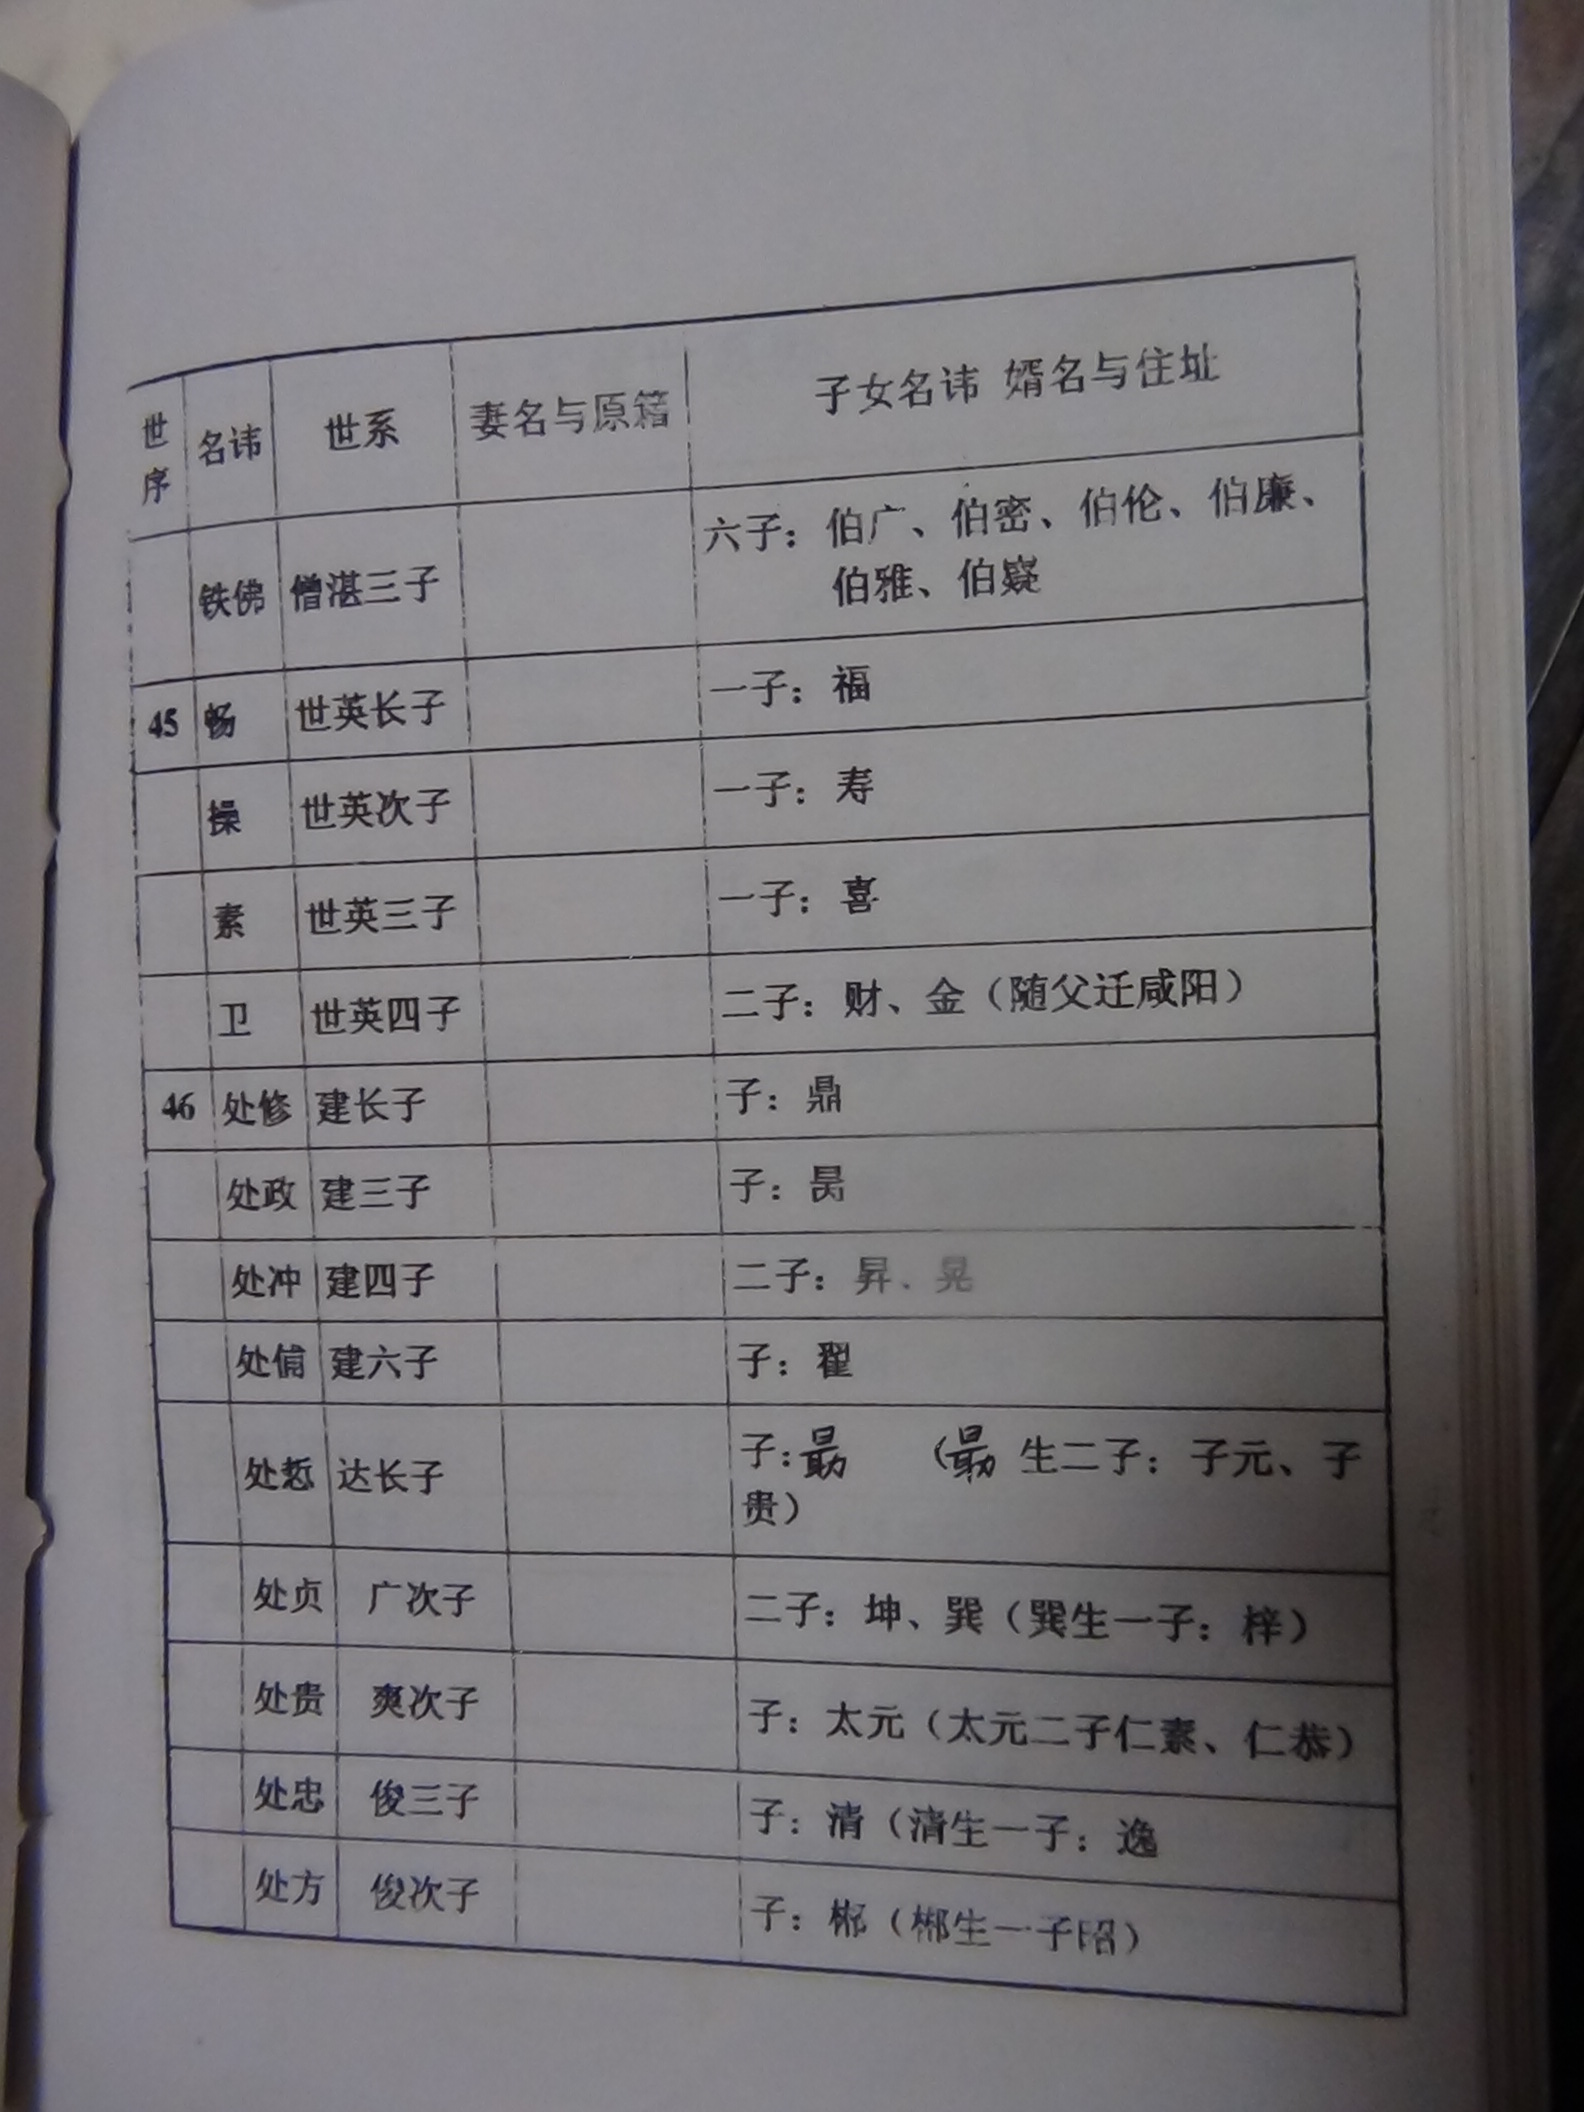 世序 名讳 世系 妻名与原籍 子女名讳 婿名与住址
铁佛 僧湛三子 六子：伯广、伯密、伯伦、伯廉、
伯雅、伯嶷
45 畅 世英长子 一子：福
操 世英次子 一子：寿
素 世英三子 一子：喜
卫 世英四子 二子：财、金（随父迁咸阳）
46 处修 建长子 子：鼎
处政 建三子 子：
处冲 建四子 二子：昇、晃
处 建六子 子：翟
处悊 达长子 子： （ 生二子：子元、子
贵）
处贞 广次子 二子：坤、巽（巽生一子：梓）
处贵 爽次子 子：太元（太元二子仁素、仁恭）
处忠 俊三子 子：清（清生一子：逸
处方 俊次子 子：郴（郴生一子昭）